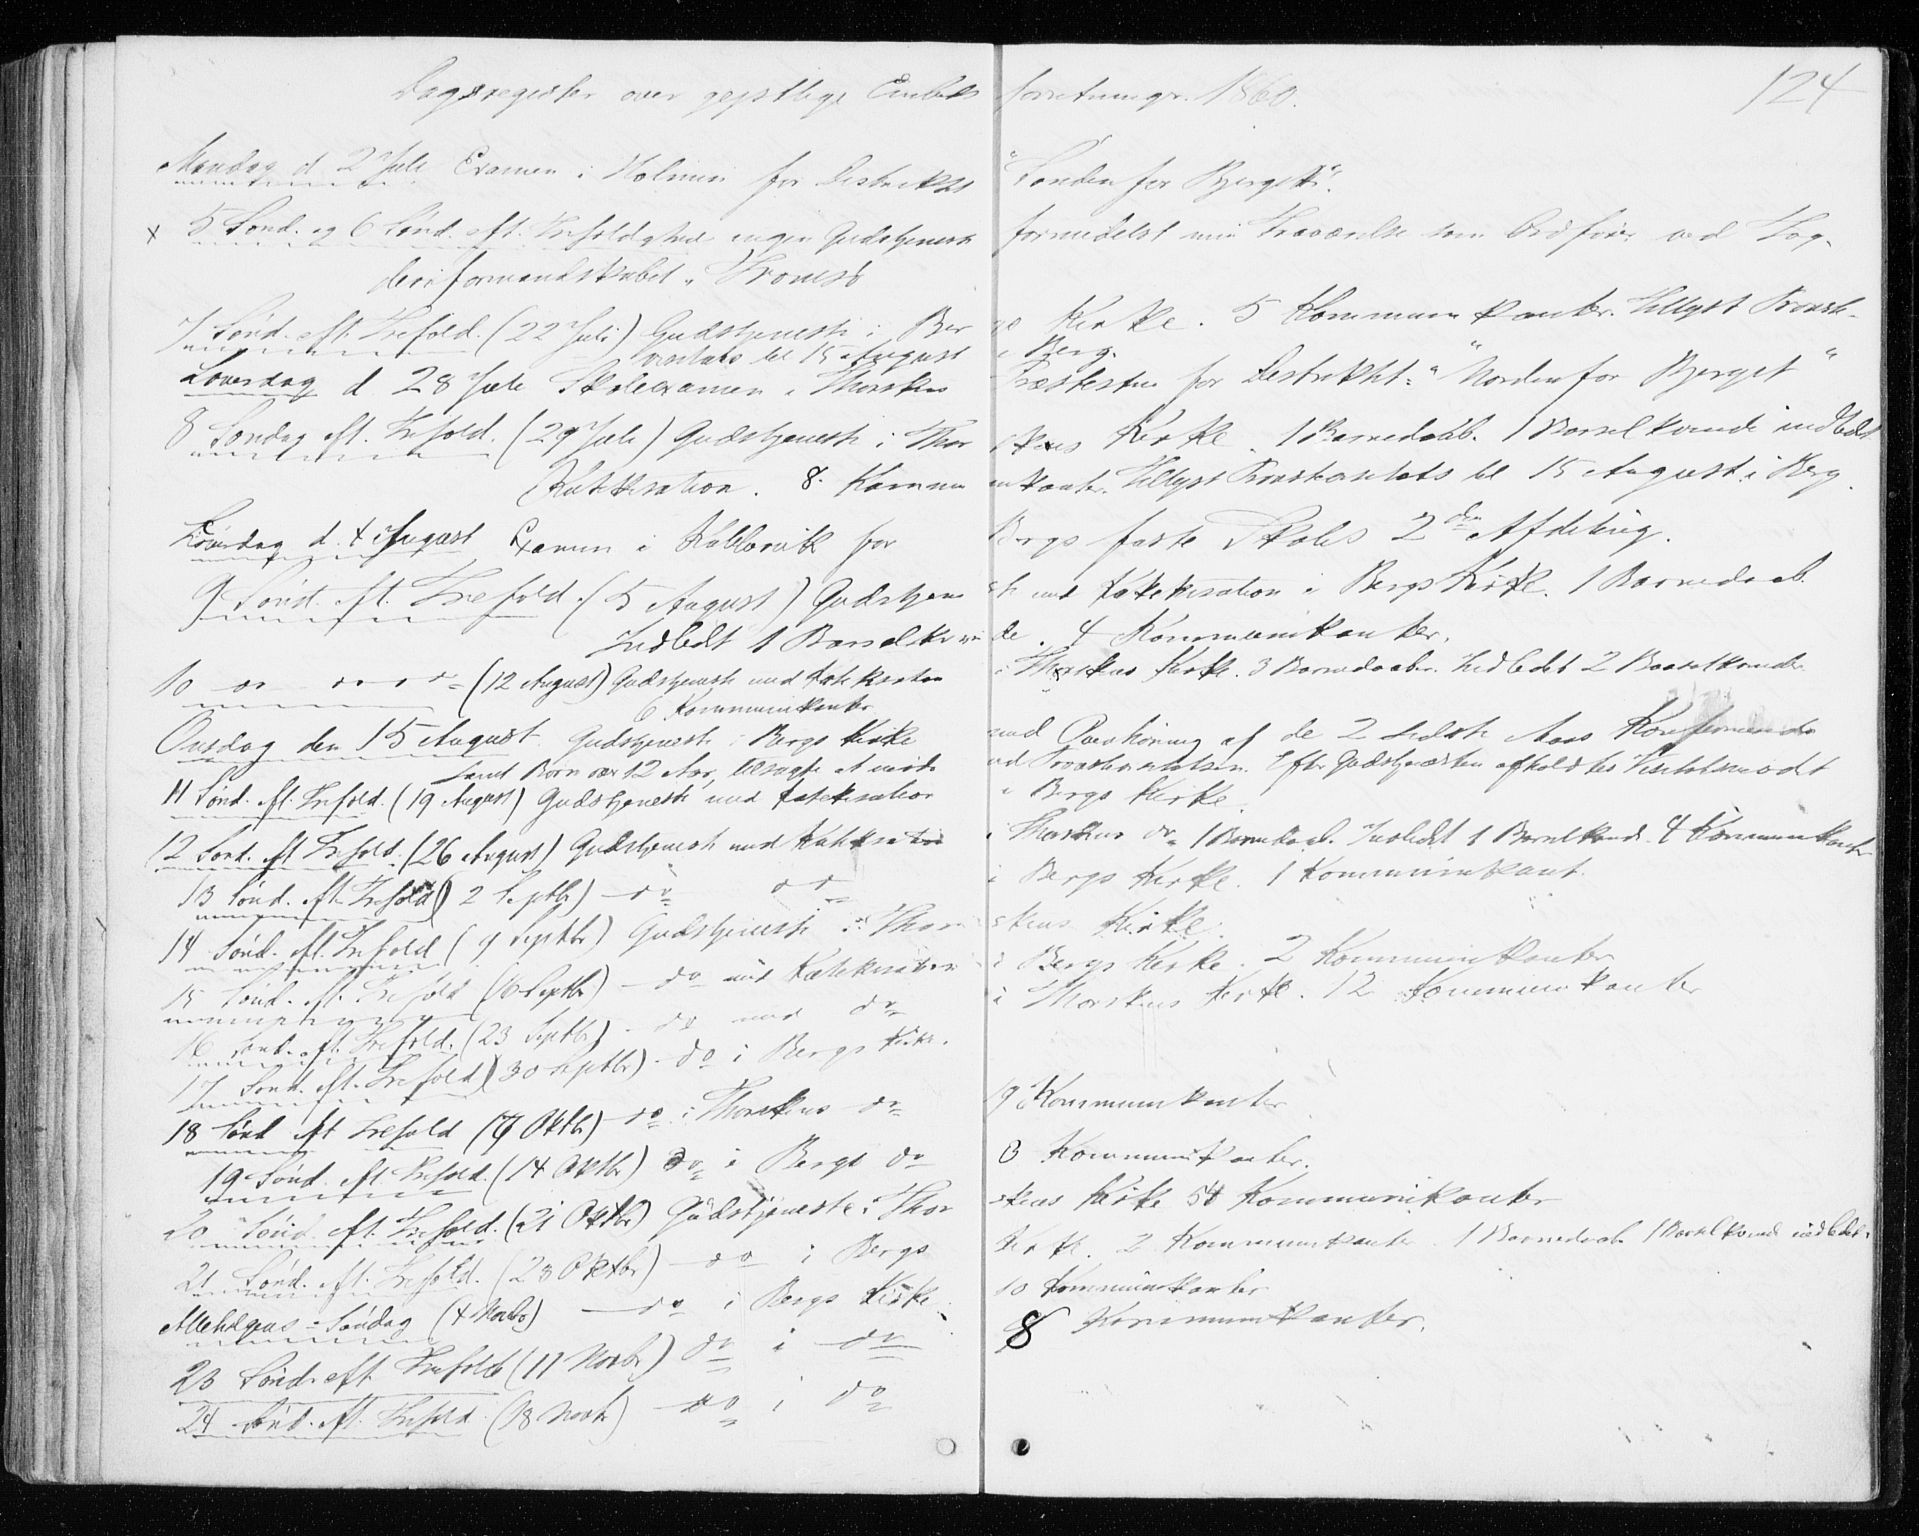 Dagsregister over gejstlige Embeds forretninger. 1860. 124
Mandag d 2 Juli Examen i Holmen for Distriktet "Sønden for Bjerget".
x 5 Sønd. og 6 Sønd. eft. Trefoldighed ingen Gudstjeneste formedelst min Fraværelse som Ordfører ved Fog-
deriformandskabet i Tromsø
7 Sønd. eft. Trefold. (22 Juli) Gudstjeneste i Bergs Kirke. 5 Kommunikanter. Tillyst Provste-
visitats til 15 August i Berg.
Løverdag d. 28 Juli Skoleexamen i Thorskens Præstestue for Distriktet: "Norden for Bjerget"
8 Søndag eft. Trefold. (29 Juli) Gudstjeneste i Thorskens Kirke. 1 Barnedaab. 1 Barselkvinde indledt
Katekisation. 8. Kommunikanter. Tillyst Provstevisitats til 15 August i Berg.
Løverdag d. 4 August Examen i Kaldvik for Bergs faste Skoles 2den Afdeling.
9 Sønd. eft. Trefold. (5 August) Gudstjeneste med Katekisation i Bergs Kirke. 1 Barnedaab.
Indledt 1 Barselkvinde. 4 Kommunikanter.
10 do do do (12 August) Gudstjeneste med Katekisation i Thorskens Kirke. 3 Barnedaaber. Indledet 2 Barselkvinder
6 Kommunikanter
Onsdag den 15 August. Gudstjeneste i Bergs Kirke med Overhøring af de 2 sidste Aars Konfirmerede
samt Børn over 12 Aar, tilsagte at møde ved Provstevisitatsen. Efter Gudstjenesten afholdtes
11 Sønd. eft. Trefold. (19 August) Gudstjeneste med Katekisation i Bergs Kirke.
12 Sønd. eft. Trefold. (26 August) Gudstjeneste med Katekisation i Thorskens do 1 Barnedaab. Indledt 1 Barselkvinde. 4 Kommunikanter
13 Sønd. eft. Trefold. (2 Septbr) do do i Bergs Kirke. 1 Kommunikant.
14 Sønd. eft. Trefold (9 Septbr) Gudstjeneste i Thorskens Kirke.
15 Sønd. eft. Trefold (16 Septbr) do med Katekisation i Bergs Kirke. 2 Kommunikanter
16 Sønd. eft. Trefold. (23 Septbr) do med do i Thorskens Kirke. 12 Kommunikanter
17 Sønd. eft. Trefold (30 Septbr) do i Bergs Kirke.
18 Sønd eft Trefold (7 Oktbr) do i Thorskens do 19 Kommunikanter
19 Sønd. eft. Trefold. (14 Oktbr) do i Bergs do 3 Kommunikanter.
20 Sønd. eft. Trefold. (21 Oktbr) Gudstjeneste i Thorskens Kirke 54 Kommunikanter
21 Sønd. eft. Trefold. (28 Oktbr) do i Bergs Kirke. 2 Kommunikanter 1 Barnedaab 1 Barselkvinde indledet.
Allehelgens-Søndag (4 Novbr) do i Bergs Kirke. 10 Kommunikanter
23 Sønd. eft. Trefold (11 Novbr) do i do 8 Kommunikanter.
24 Sønd. eft. Trefold (18 Novbr) do i do